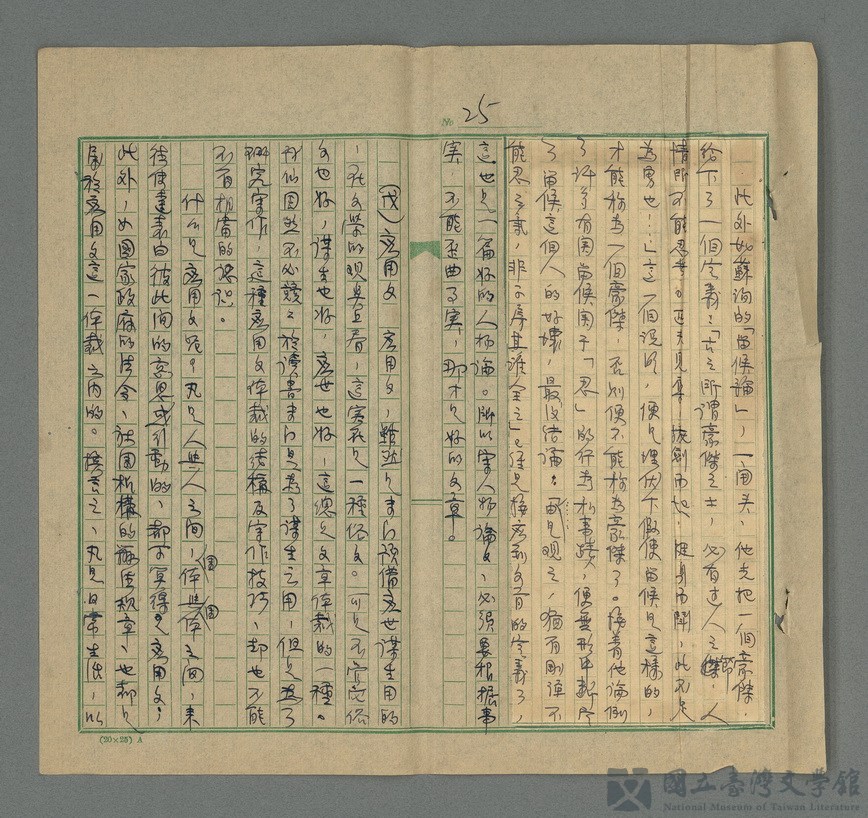 № 25
此外如蘇洵的「留侯論」,一開头,他先把一個豪傑,
給下了一個定義:「古之所謂豪傑之士,必有过人之節,人
情所不能忍者。匹夫見辱,拔劍而起,挺身而鬪,此不足
為勇也…」這一個説明,便是埋伏下假使留侯是這樣的,
才能称為一個豪傑,否則便不能称為豪傑了。接着他論例
了許多有関留侯関于「忍」的行為和事蹟,便無形中断定
了留侯這個人的好壞,最後結論:「觀之,猶有剛 不
能忍之氣,非子房其誰全之」已經是接應到文首的定義了,
這也是一篇好的人物論。所以寫人物論文,必須要根据事
实,不能歪曲了实,那才是好的文章。
(戊)應用文 應用文,雖然是专门預備應世謀生用的
,在文學的观点上看,這実在是一種俗文。可是不管它俗
文也好,謀生也好,應世也好,這總是文章体裁的一種。
我们固然不必讀讀書专门是為了謀生之用,但是為了
研究寫作,這種應用文体裁的結構及寫作技巧,却也不能
不有相當的認識。
什么是應用文呢?凡是人與人之間,團体與團体之間,来
往使達表白彼此间的意思或行動的,都可算得是應用文;
此外,如国家政府的法令、社团机構的 法規章,也都是
屬於應用文這一体裁之内的。換言之,凡是日常生活,以
(20×25) A
國立臺灣文學館
National Museum of Taiwan Literature